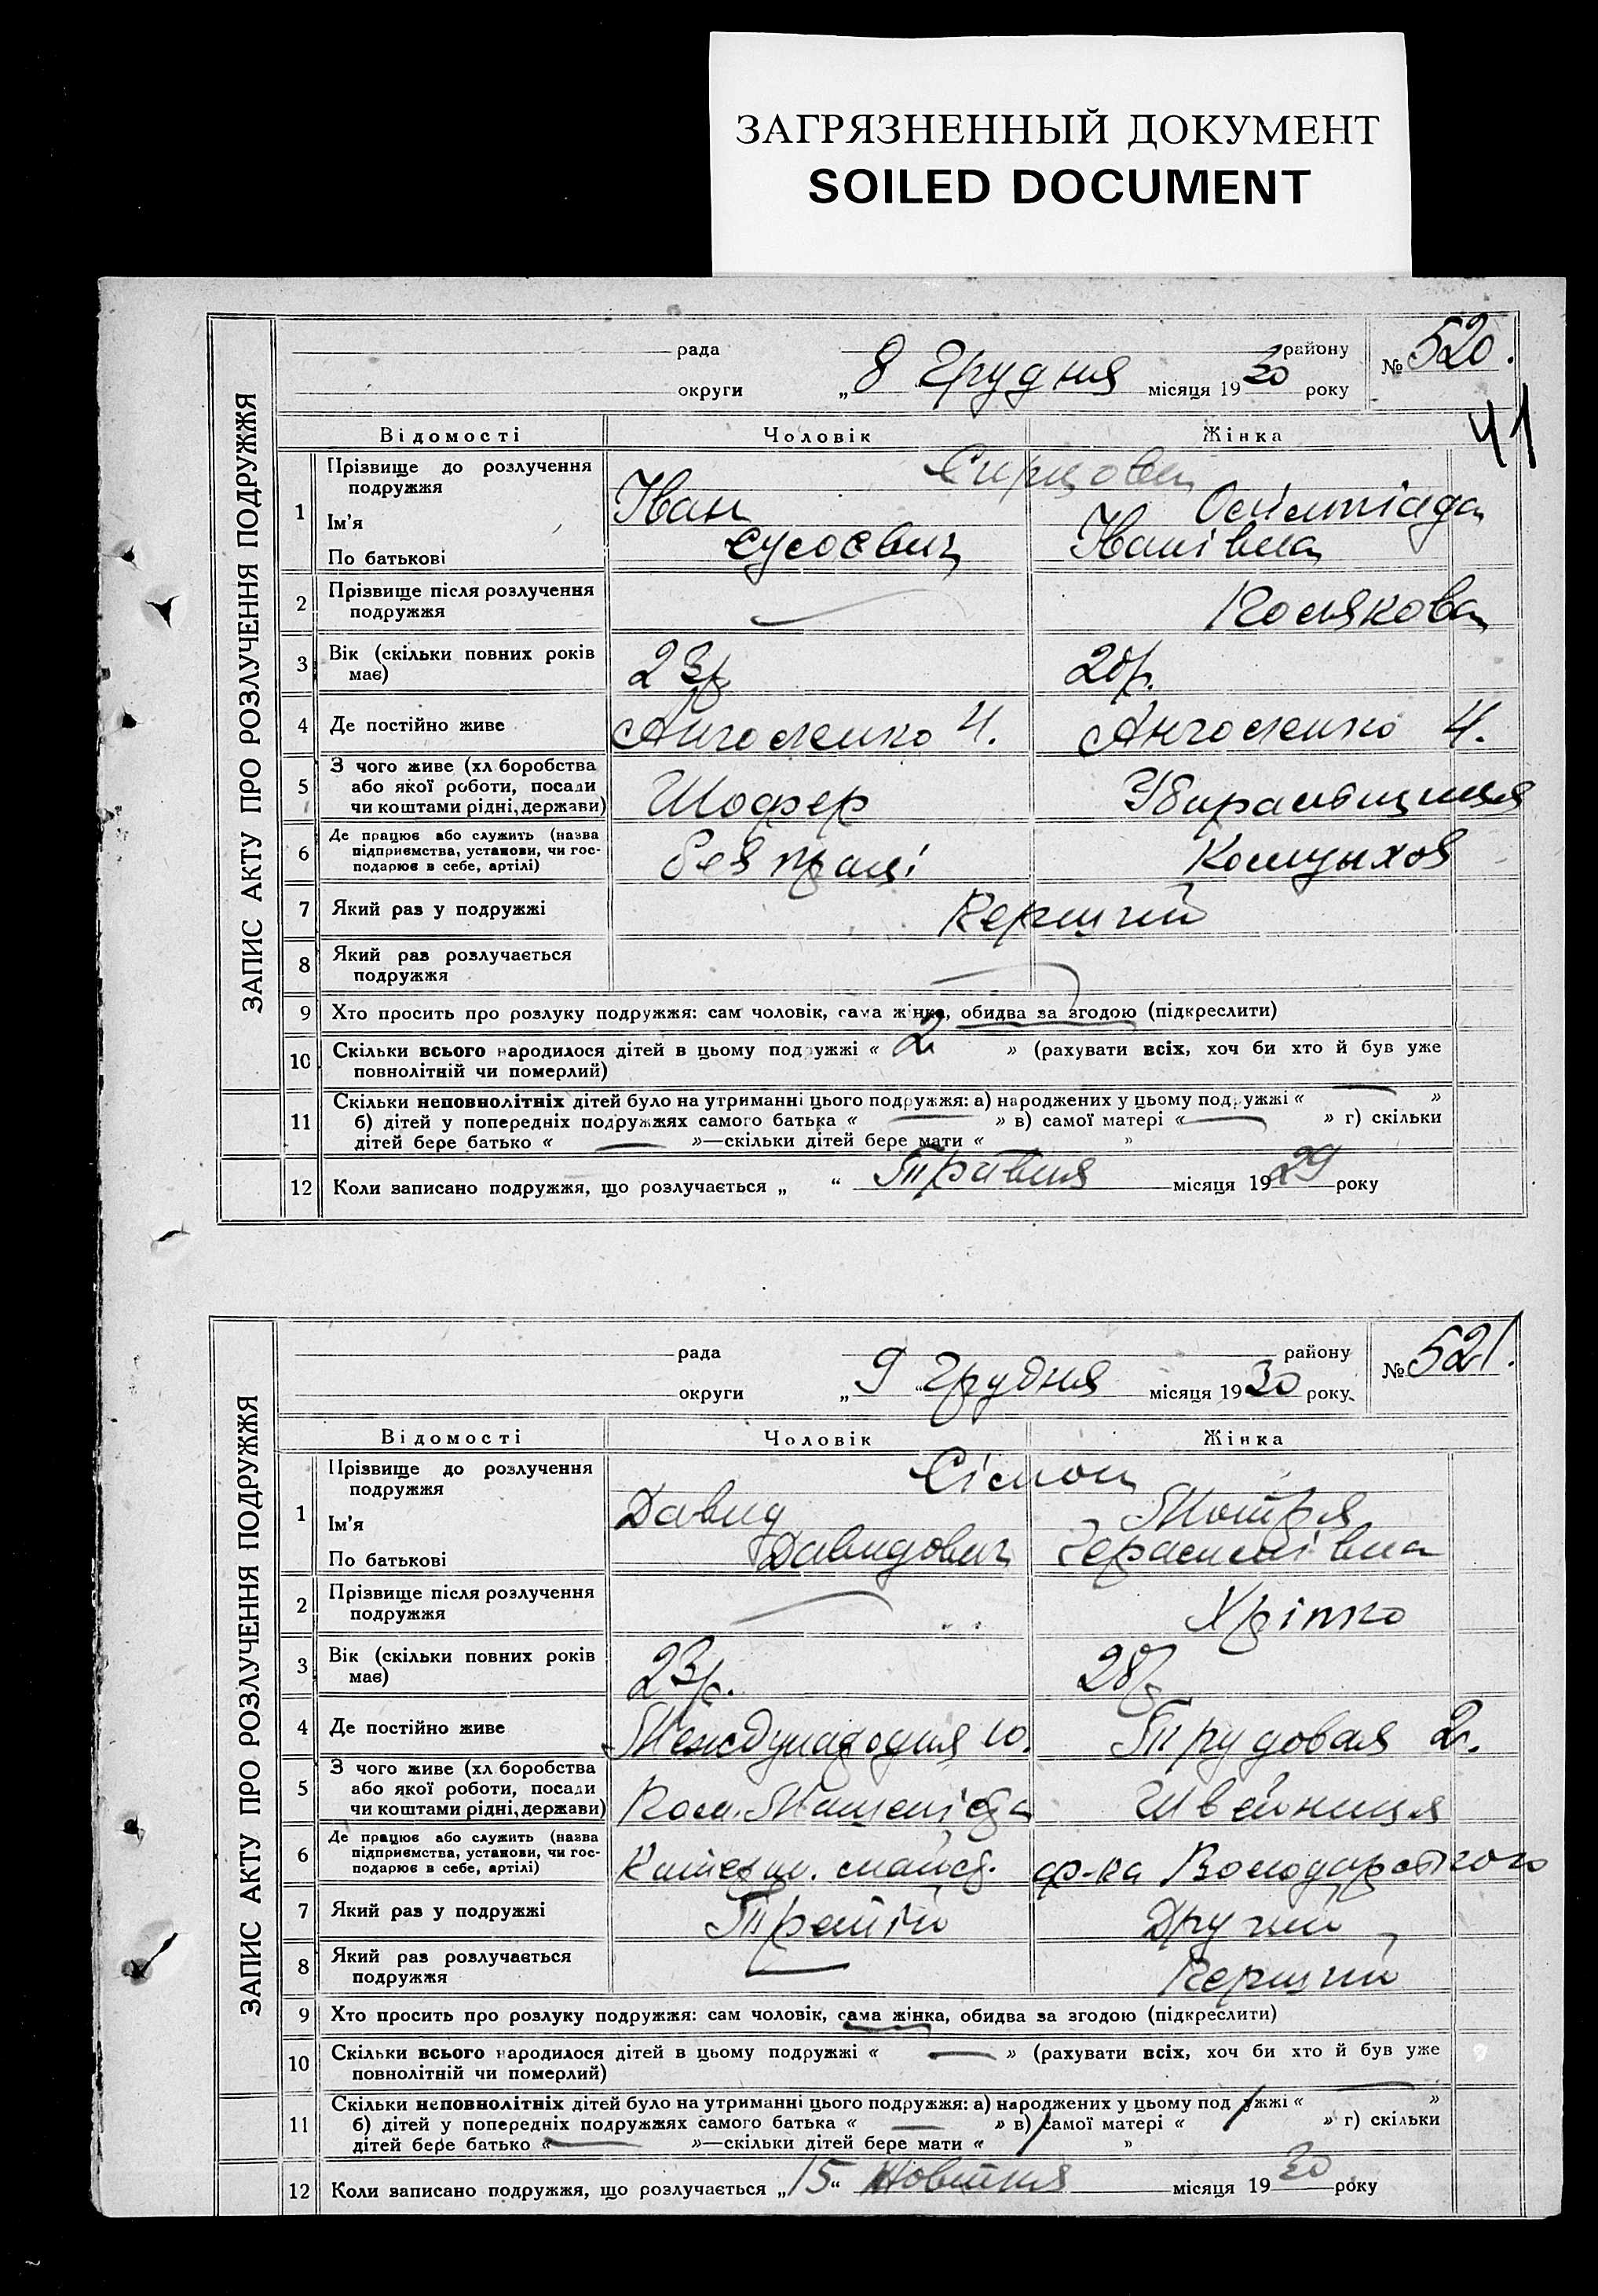 ЗАГРЯЗНЕННЫЙ ДОКУМЕНТ
SOILED DOCUMENT
ЗАПИС АКТУ ПРО РОЗЛУЧЕННЯ ПОДРУЖЖЯ
рада району № 520.
округи „ 8 " Грудня місяця 1930 року
41
Відомості Чоловік Жінка
1 Прізвище до розлучення
подружжя
Ім'я Іван
По батькові Іванівна
2 Прізвище після розлучення
подружжя
3 Вік (скільки повних років 23р. 20р.
має)
4 Де постійно живе 4. 4.
5 З чого живе (хл боробства
або якої роботи, посади Шофер
чи коштами рідні, держави)
6 Де працює або служить (назва
підприємства, установи, чи гос- без праці
подарює в себе, артілі)
7 Який раз у подружжі Перший
8 Який раз розлучається
подружжя
9 Хто просить про розлуку подружжя: сам чоловік, сама жінка, обидва за згодою (підкреслити)
10 Скільки всього народилося дітей в цьому подружжі « 2 » (рахувати всіх, хоч би хто й був уже
повнолітній чи померлий)
11 Скільки неповнолітніх дітей було на утриманні цього подружжя: а) народжених у цьому подружжі « — »
б) дітей у попередніх подружжях самого батька « — » в) самої матері « — » г) скільки
дітей бере батько « — »—скільки дітей бере мати « »
12 Коли записано подружжя, що розлучається „ “ Травня місяця 1929 року
ЗАПИС АКТУ ПРО РОЗЛУЧЕННЯ ПОДРУЖЖЯ
рада району № 521.
округи „ 9 " Грудня місяця 1930 року
Відомості Чоловік Жінка
1 Прізвище до розлучення
подружжя
Ім'я Давид Мотря
По батькові Давидович Герасимівна
2 Прізвище після розлучення
подружжя Хріпко
3 Вік (скільки повних років 23р. 28р
має)
4 Де постійно живе 10. Трудовая 2.
5 З чого живе (хл боробства
або якої роботи, посади Швейниця
чи коштами рідні, держави)
6 Де працює або служить (назва
підприємства, установи, чи гос- ф-ка Володарского
подарює в себе, артілі)
7 Який раз у подружжі Третій Другий
8 Який раз розлучається — Перший
подружжя
9 Хто просить про розлуку подружжя: сам чоловік, сама жінка, обидва за згодою (підкреслити)
10 Скільки всього народилося дітей в цьому подружжі « — » (рахувати всіх, хоч би хто й був уже
повнолітній чи померлий)
11 Скільки неповнолітніх дітей було на утриманні цього подружжя: а) народжених у цьому подружжі « — »
б) дітей у попередніх подружжях самого батька « — » в) самої матері « » г) скільки
дітей бере батько « — »—скільки дітей бере мати « »
12 Коли записано подружжя, що розлучається „ 15 “ Жовтня місяця 1930 року